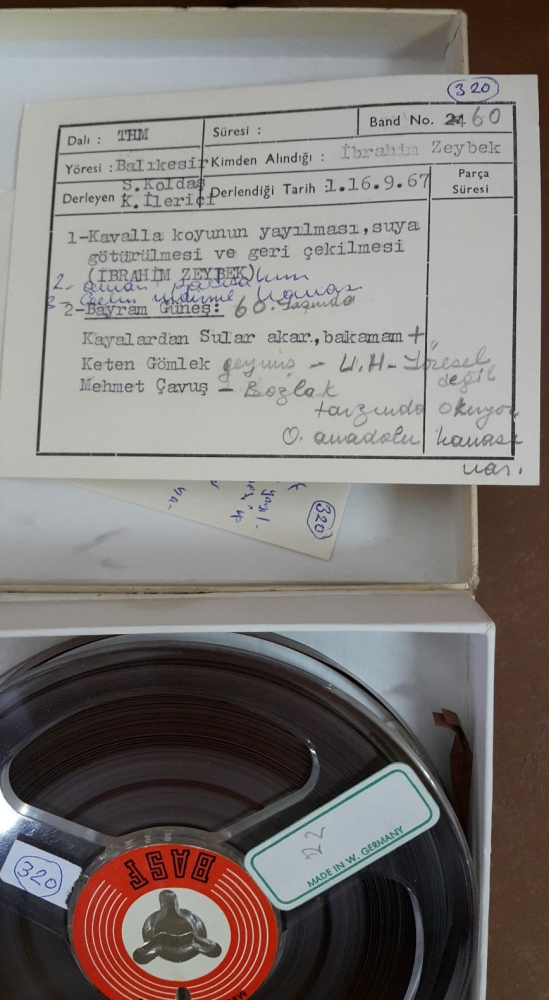 320
Dalı : THM
Süresi :
Band No. 24 60
Yöresi : Balıkesir
Kimden Alındığı : İbrahim Zeybek
Derleyen S.Koldaş
K.İlerici
Derlendiği Tarih :1.16.9.67
Parça
Süresi
1-Kavalla koyunun yayılması,suya
götürülmesi ve geri çekilmesi
(İBRAHİM ZEYBEK)
2- aman
3- Gelin indirme havası
2-Bayram Güneş: 60. Yaşında
Kayalardan Sular akar.,bakamam +
Keten Gömlek geymiş - U.H- Yöresel
değil
Mehmet Çavuş - Bozlak
tarzında okuyor
O. anadolu havası
var.
320
320
BASF
22
MADE IN W. GERMANY